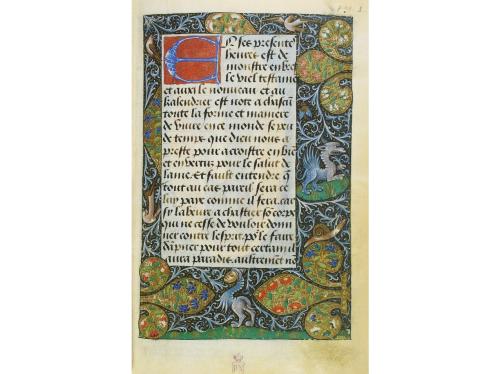 E N ses presente
heures est de
monstre en bref
le viel testame
et auxi le nouveau et au
kalendrier est note a chascu
toute la forme et maniere
de vivre en ce monde se peu
de temps que dieu nous a
preste pour acroistre en bie
et en vertus pour le salut de
lame. Et fault entendre q
tout au cas pareil sera ce
luy paye comme il fera. car
sy labeure a chastier so corps
qui ne cesse de vouloir don
ner contre lesprit. po le faire
dapner pour tout certain il
aura paradis. autrement ne